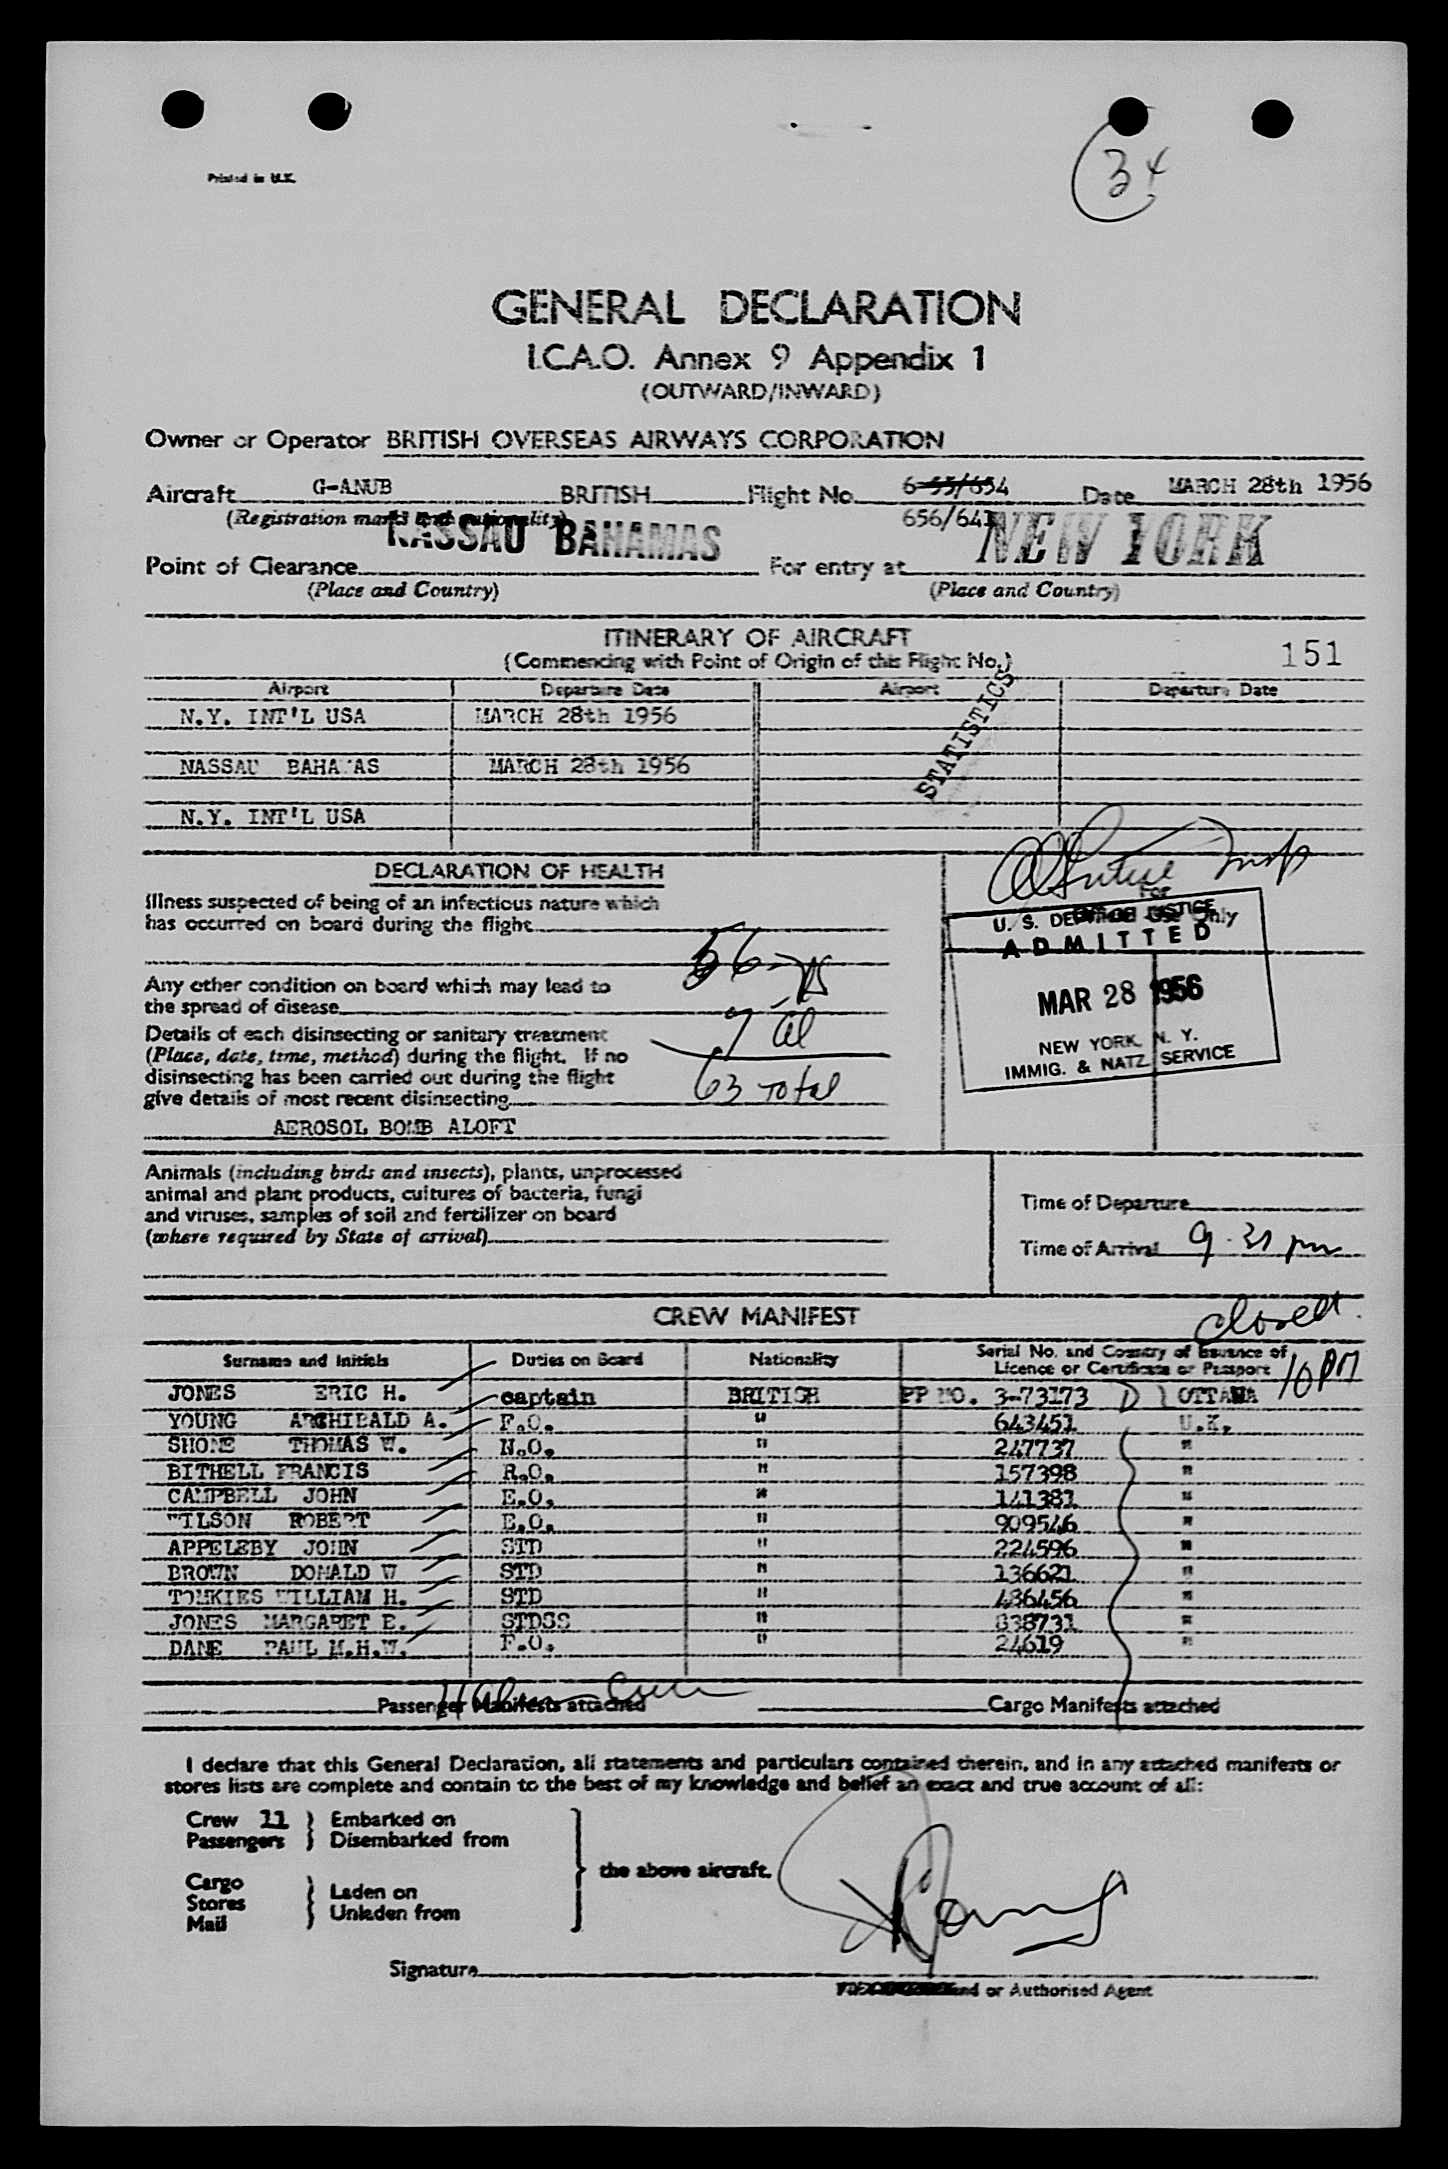 34
Printed in U.K.
GENERAL DECLARATION
I.C.A.O. Annex 9 Appendix 1
(OUTWARD/INWARD)
Owner or Operator BRITISH OVERSEAS AIRWAYS CORPORATION
Aircraft G-ANUB BRITISH Flight No. 6-55/654 Date MARCH 28th 1956
(Registration marks and nationality) 656/641
NASSAU BAHAMAS NEW YORK
Point of Clearance For entry at
(Place and Country) (Place and Country)
ITINERARY OF AIRCRAFT
151
(Commencing with Point of Origin of this Flight No.)
Airport Departure Date Airport Departure Date
N.Y. INT'L USA MARCH 28th 1956
STATISTICS
NASSAU BAHA AS MARCH 28th 1956
N.Y. INT'L USA
DECLARATION OF HEALTH
Illness suspected of being of an infectious nature which
has occurred on board during the flight
For
Official Use Only
U. S. DEPT. OF JUSTICE
ADMITTED
MAR 28 1956
NEW YORK, N. Y.
IMMIG. & NATZ. SERVICE
56
Any other condition on board which may lead to
the spread of disease
7 al
Details of each disinsecting or sanitary treatment
(Place, date, time, method) during the flight. If no
disinsecting has been carried out during the flight
give details of most recent disinsecting
63 Total
AEROSOL BOMB ALOFT
Animals (including birds and insects), plants, unprocessed
animal and plant products, cultures of bacteria, fungi
and viruses, samples of soil and fertilizer on board
(where required by State of arrival)
Time of Departure
Time of Arrival 9-31 pm
CREW MANIFEST
closed
10 PM
Surname and Initials Duties on Board Nationality Serial No. and Country of Issuance of
Licence or Certificate or Passport
JONES ERIC H. captain BRITISH PP NO. 3-73173 D) OTTAWA
YOUNG ARCHIBALD A. F.O. " 643451 U.K.
SHONE THOMAS W. N.O. " 247737 "
BITHELL FRANCIS R.O. " 157398 "
CAMPBELL JOHN E.O. " 141381 "
WILSON ROBERT E.O. " 909546 "
APPELEBY JOHN STD " 224596 "
BROWN DONALD W STD " 136621 "
TOMKIES WILLIAM H. STD " 486456 "
JONES MARGARET E. STDSS " 838731 "
DANE PAUL M.H.W. F.O. " 24619 "
Passenger Manifests attached Cargo Manifests attached
I declare that this General Declaration, all statements and particulars contained therein, and in any attached manifests or
stores lists are complete and contain to the best of my knowledge and belief an exact and true account of all:
Crew 11 } Embarked on
Passengers } Disembarked from
the above aircraft.
Cargo
Stores } Laden on
Mail } Unladen from
Signature
or Authorised Agent